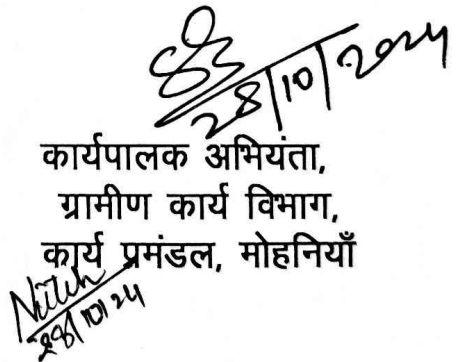 28/10/2024
कार्यपालक अभियंता,
ग्रामीण कार्य विभाग,
कार्य प्रमंडल, मोहनियाँ
Nitish
28/10/24